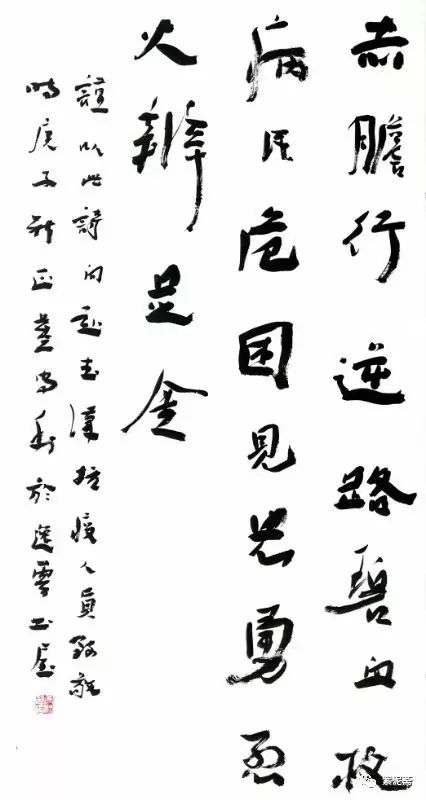 赤膽行逆路碧血救
病民危困見忠勇烈
火辨足金
謹以此詩向赴武漢抗疫人員致敬
時庚子新正於逸雲書屋